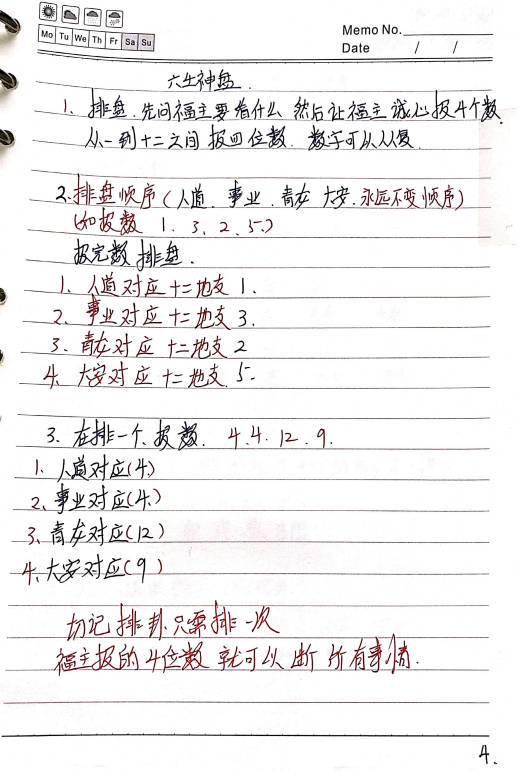 Mo Tu We Th Fr Sa Su
Memo No.
Date / /
六壬神盘.
1. 排盘.先问福主要看什么 然后让福主诚心报4个数.
从一到十二之间报四位数.数字可以从复.
2.排盘顺序(人道.事业.青龙.大安.永远不变顺序)
(如报数 1. 3. 2. 5.)
报完数排盘.
1. 人道对应十二地支 1.
2. 事业对应十二地支 3.
3. 青龙对应十二地支 2
4. 大安对应十二地支.5.
3. 在排一个.报数. 4.4.12.9.
1. 人道对应(4)
2. 事业对应(4)
3. 青龙对应(12)
4. 大安对应(9)
切记排卦.只需排一次
福主报的4位数 就可以断所有事情.
4.